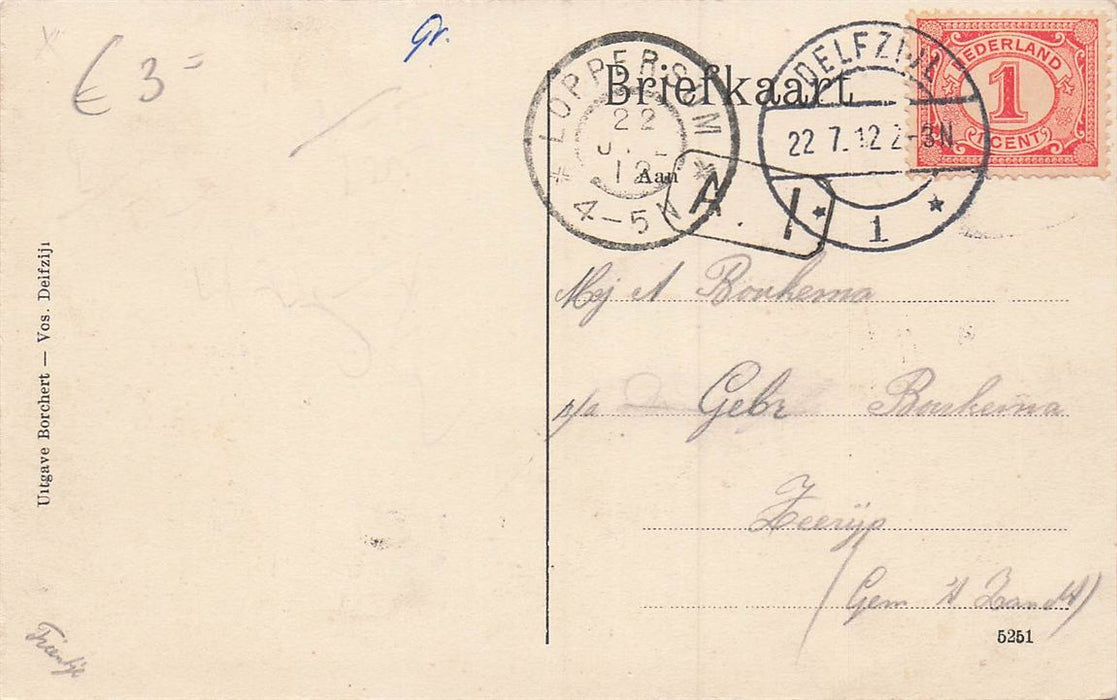 € 3=
Gr.
Briefkaart
Aan
LOPPERSUM
22
12
4-5N
DELFZIJL
22 7.12 2-3N
1
NEDERLAND
1
CENT
A. I
Mej A Bouhema
p/a Gebr Bouhema
Zeerijp
(Gem 't Zandt)
5251
Uitgave Borchert — Vos. Delfzijl